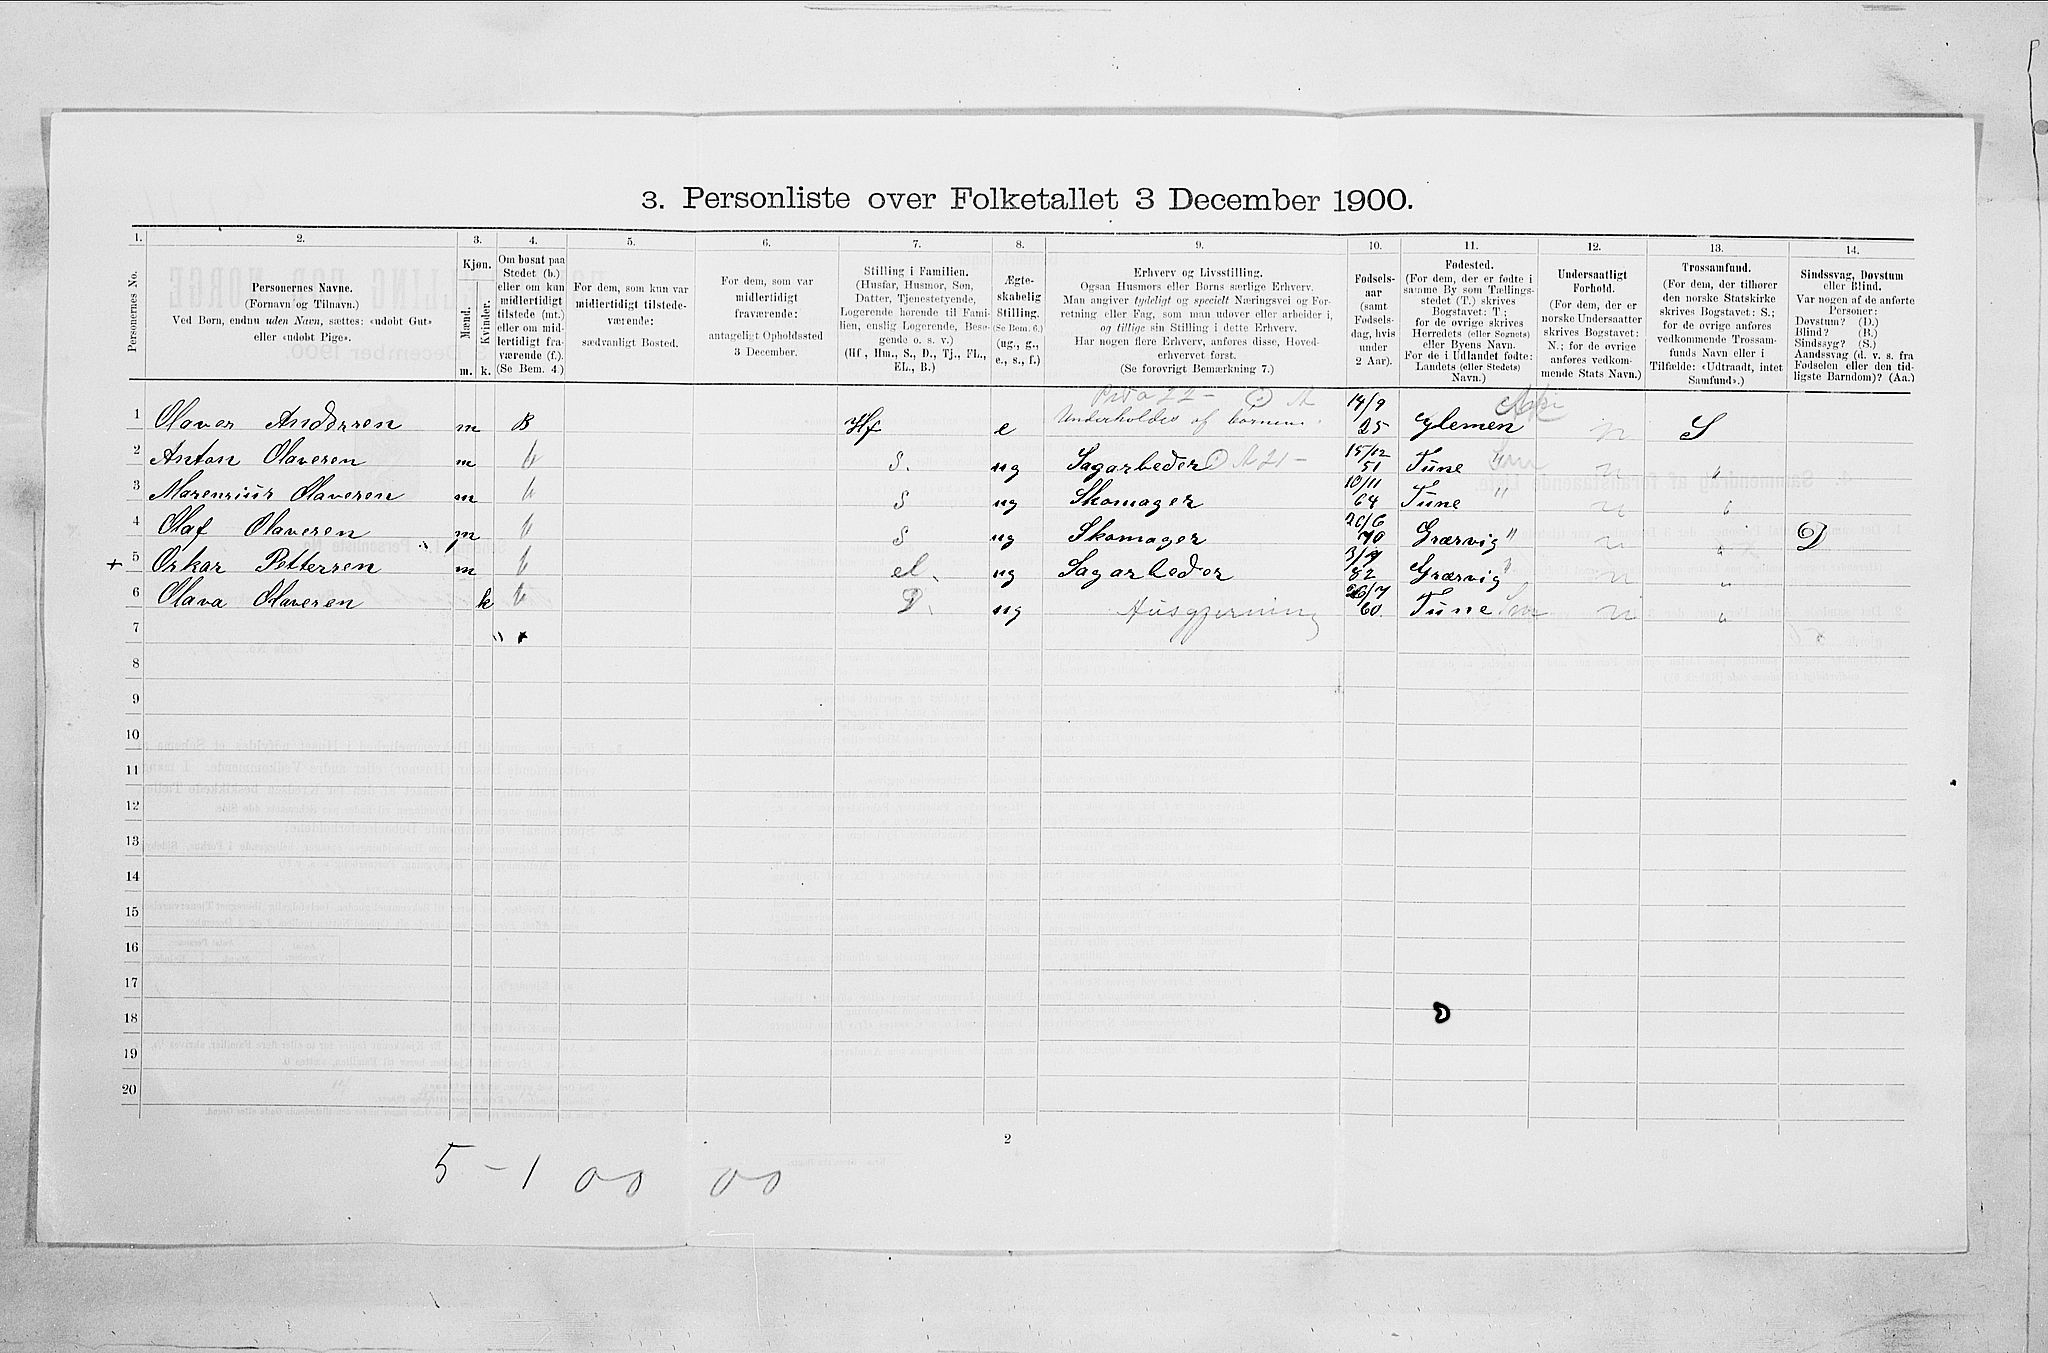 3. Personliste over Folketallet 3 December 1900.
1. 2. 3. 4. 5. 6. 7. 8. 9. 10. 11. 12. 13. 14.
Personernes No.
Personernes Navne.
(Fornavn og Tilnavn.)
Ved Børn, endnu uden Navn, sættes: «udøbt Gut»
eller «udøbt Pige».
Kjøn.
Mænd.
Kvinder.
m. k.
Om bosat paa
Stedet (b.)
eller om kun
midlertidigt
tilstede (mt.)
eller om mid-
lertidigt fra-
værende (f.).
(Se Bem. 4.)
For dem, som kun var
midlertidigt tilstede-
værende:
sædvanligt Bosted.
For dem, som var
midlertidigt
fraværende:
antageligt Opholdssted
3 December.
Stilling i Familien.
(Husfar, Husmor, Søn,
Datter, Tjenestetyende,
Logerende hørende til Fami-
lien, enslig Logerende, Besø-
gende o. s. v.)
(Hf., Hm., S., D., Tj., FL.,
EL., B.)
Ægte-
skabelig
Stilling.
(Se Bem. 6.)
(ug., g.,
e., s., f.)
Erhverv og Livsstilling.
Ogsaa Husmors eller Børns særlige Erhverv.
Man angiver tydeligt og specielt Næringsvei og For-
retning eller Fag, som man udøver eller arbeider i,
og tillige sin Stilling i dette Erhverv.
Har nogen flere Erhverv, anføres disse, Hoved-
erhvervet først.
(Se forøvrigt Bemærkning 7.)
Fødsels-
aar
(samt
Fødsels-
dag, hvis
under
2 Aar).
Fødested.
(For dem, der er fødte i
samme By som Tællings-
stedet (T.) skrives
Bogstavet: T;
for de øvrige skrives
Herredets (eller Sognets)
eller Byens Navn.
For de i Udlandet fødte:
Landets (eller Stedets)
Navn.)
Undersaatligt
Forhold.
(For dem, der er
norske Undersaatter
skrives Bogstavet:
N.; for de øvrige
anføres vedkom-
mende Stats Navn.)
Trossamfund.
(For dem, der tilhører
den norske Statskirke
skrives Bogstavet: S.;
for de øvrige anføres
vedkommende Trossam-
funds Navn eller i
Tilfælde: «Udtraadt, intet
Samfund».)
Sindssvag, Døvstum
eller Blind.
Var nogen af de anførte
Personer:
Døvstum? (D.)
Blind? (B.)
Sindssyg? (S.)
Aandssvag (d. v. s. fra
Fødselen eller den tid-
ligste Barndom)? (Aa.)
1 Olaves Anderssen m B Hf e Underholdes af børnene 14/9 25 Glemen n S
2 Anton Olavesen m b S. ug Sagarbeder 15/12 51 Tune " n "
3 Marensius Olavesen m b S ug Skomager 10/11 64 Tune " n "
4 Olaf Olavesen m b S ug Skomager 26/6 70 Græsvig " n " D
+ 5 Oskar Pettersen m b el. ug Sagarbeder 82 Græsvig " n "
6 Olava Olavesen k b D. ug Husgjerning 60 Tune n "
7
8
9
10
11
12
13
14
15
16
17
18
19
20
2
5 - 1 00 00